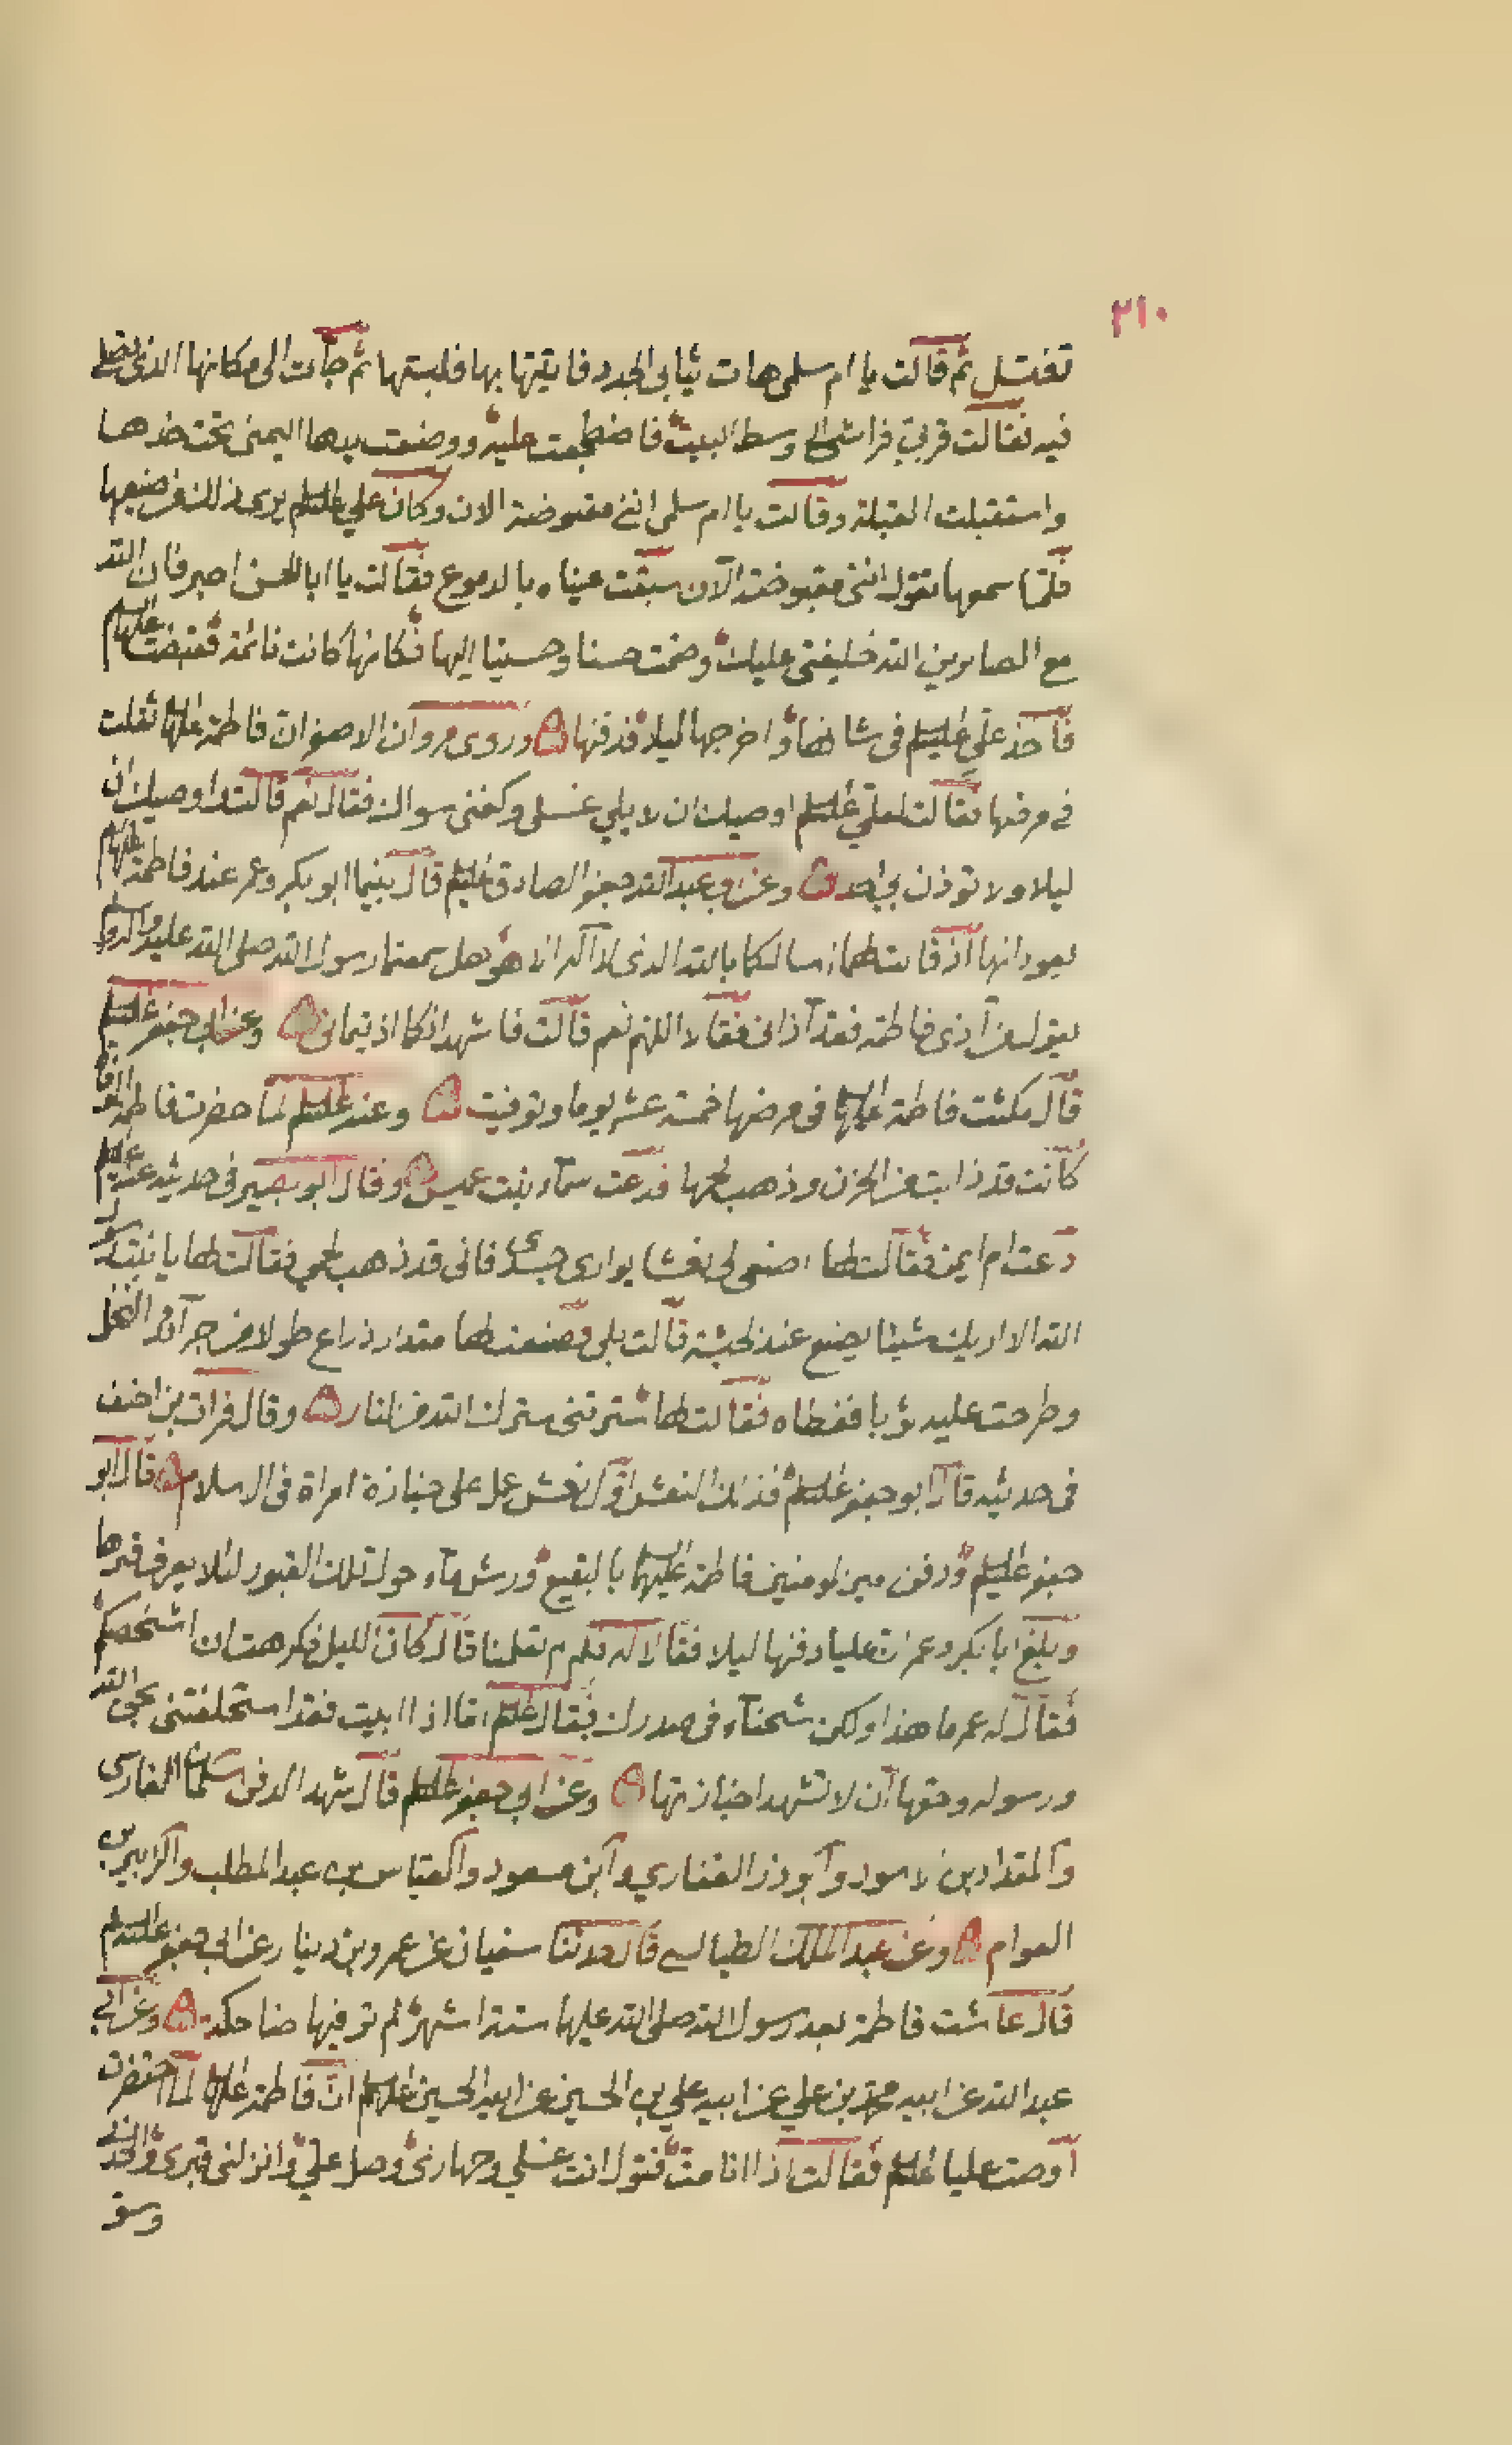 ٢١٠
تغتسل ثم قالت يا ام سلمى هات ثيابي الجدد فاتيتها بها فلبستها ثم جآءت الى مكانها الذي تصلي
فيه فقالت قربي فراشي الى وسط البيت فاضطجعت عليه ووضعت يدها اليمنى تحت خدها
واستقبلت القبلة وقالت يا ام سلمى انني مقبوضة الان وكان علي عليه السلام يرى ذلك من صنيعها
فلما سمعها تقول انني مقبوضة الآن سبقت عيناه بالدموع فقالت يا ابا الحسن اصبر فان الله
مع الصابرين الله خليفتي عليك وضمت حسنا وحسينا اليها فكانها كانت نائمة فقبضت عليها السلام
فاخذ علي عليه السلام في شانها واخرجها ليلا فدفنها وروى مروان الاصفر ان فاطمة عليها السلام ثقلت
في مرضها فقالت لعلي عليه السلام اوصيك ان لا يلي غسلي وكفني سواك فقال نعم قالت واوصيك ان
ليلا ولا توذن بي احد وعن ابي عبد الله جعفر الصادق عليه السلام قال بينما ابو بكر وعمر عند فاطمة عليها السلام
يعودانها اذ قالت لهما اسالكما بالله الذي لا اله الا هو هل سمعتما رسول الله صلى الله عليه وآله وسلم
يقول من آذى فاطمة فقد آذاني فقالا اللهم نعم قالت فاشهد انكما اذيتماني وعن ابي جعفر عليه السلام
قال مكثت فاطمة عليها السلام في مرضها خمسة عشر يوما وتوفيت وعنه عليه السلام لما حضرت فاطمة الوفاة
كانت قد ذابت من الحزن وذهب لحمها فدعت اسمآء بنت عميس وقال ابو بصير في حديثه عنه عليه السلام
دعت ام ايمن فقالت لها اصنعي لي نعشا يواري جسدي فاني قد ذهب لحمي فقالت لها يا بنت رسول
الله الا اريك شيئا يصنع عند الحبشة قالت بلى فصنعت لها مقدار ذراع طولا من جرآئد النخل
وطرحت عليه ثوبا فغطاه فقالت لها سترتني سترك الله من النار وقال فرات بن احنف
في حديثه قال ابو جعفر عليه السلام فذلك النعش اول نعش عمل على جنازة امراة في الاسلام قال ابو
جعفر عليه السلام ودفن امير المومنين فاطمة عليها السلام بالبقيع ورش مآء حول تلك القبور لئلا يعرف قبرها
وبلغ ابا بكر وعمر ان عليا دفنها ليلا فقالا له فلم لم تعلمنا قال كان الليل فكرهت ان اشخصكم
فقال له عمر ما هذا ولكن شحنآء في صدرك فقال عليه السلام اما اذا ابيت فقد استحلفتني بحق الله
ورسوله وحقها ان لا تشهدا جنازتها وعن ابي جعفر عليه السلام قال شهد الدفن سلمان الفارسي
والمقداد بن الاسود وابو ذر الغفاري وابن مسعود والعباس بن عبد المطلب والزبير بن
العوام وعن عبد الملك الطيالسي قال حدثنا سفيان عن عمرو بن دينار عن ابي جعفر عليه السلام
قال عاشت فاطمة بعد رسول الله صلى الله عليها ستة اشهر لم تر فيها ضاحكة وعن ابي
عبد الله عن ابيه محمد بن علي عن ابيه علي بن الحسين عن ابيه الحسين عليهم السلام ان فاطمة عليها السلام لما احتضرت
اوصت عليا عليه السلام فقالت اذا انا مت فتول انت غسلي وجهازي وصل علي وانزلني قبري والحدني
وسو